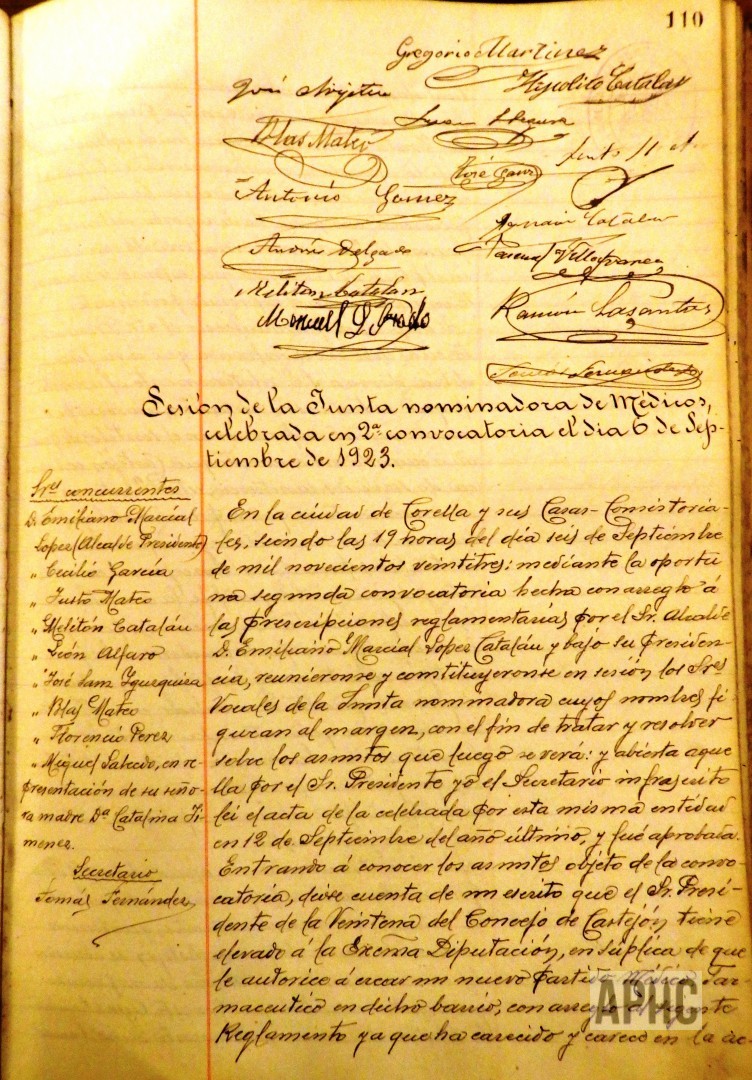 110
Gregorio Martinez
Hypolito Catalan
José
Juan
Blas Mateo
José Sanz
Justo
Antonio Gomez
Catalan
Andrés Delgado
Pascual Villafranca
Melitón Catalan
Manuel L. Prado
Ramón Lasantas
Sesión de la Junta nominadora de Médicos,
celebrada en 2ª convocatoria el dia 6 de Sep-
tiembre de 1923.
Sres concurrentes
D. Emiliano Marcial
Lopez (Alcalde Presidente)
" Cecilio Garcia
" Justo Mateo
" Melitón Catalán
" León Alfaro
" José Sanz Yzurquiza
" Blas Mateo
" Florencio Perez
" Miguel Salcedo, en re-
presentación de su seño-
ra madre Dª Catalina Ji-
menez.
Secretario
Tomás Fernández
En la ciudad de Corella y sus Casas-Consistoria-
les, siendo las 19 horas del dia seis de Septiembre
de mil novecientos veintitres: mediante la oportu-
na segunda convocatoria hecha con arreglo á
las prescripciones reglamentarias por el Sr. Alcalde
D. Emiliano Marcial Lopez Catalán y bajo su Presiden-
cia, reunieronse y constituyeronse en sesión los Sres
Vocales de la Junta nominadora cuyos nombres fi-
guran al margen, con el fin de tratar y resolver
sobre los asuntos que luego se verá: y abierta aque-
lla por el Sr. Presidente yo el Secretario infrascrito
lei el acta de la celebrada por esta misma entidad
en 12 de Septiembre del año último, y fué aprobada.
Entrando á conocer los asuntos objeto de la convo-
catoria, dióse cuenta de un escrito que el Sr. Presi-
dente de la Veintena del Concejo de Castejón tiene
elevado á la Excma Diputación, en súplica de que
le autorice á crear un nuevo Partido Médico Far-
maceutico en dicho barrio, con arreglo al vigente
Reglamento ya que ha carecido y carece en la ac-
APHC